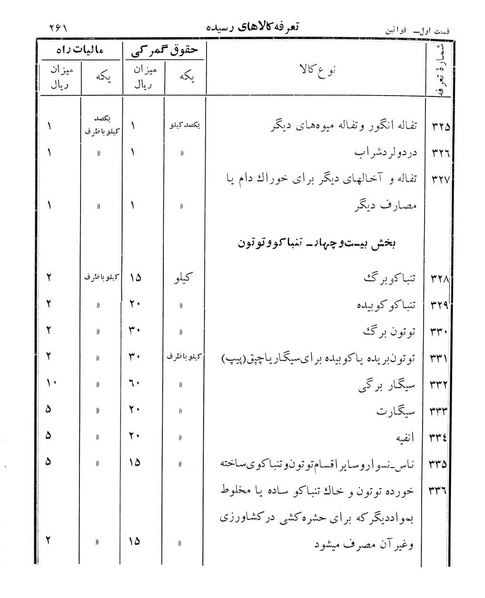 قسمت اول ـ قوانین تعرفه کالاهای رسیده ۲۶۱
شمارهٔ تعرفه نوع کالا حقوق گمرکی مالیات راه
یکه میزان ریال یکه میزان ریال
۳۲۵ تفاله انگور و تفاله میوه‌های دیگر یکصد کیلو ۱ یکصد کیلو باظرف ۱
۳۲۶ دردو لرد شراب » ۱ » ۱
۳۲۷ تفاله و آخالهای دیگر برای خوراك دام یا
مصارف دیگر » ۱ » ۱
بخش بیست و چهارم ـ تنباکو و توتون
۳۲۸ تنباکو برگ کیلو ۱۵ کیلو باظرف ۲
۳۲۹ تنباکو کوبیده » ۲۰ » ۲
۳۳۰ توتون برگ » ۳۰ » ۲
۳۳۱ توتون بریده یا کوبیده برای سیگار یا چپق (پیپ) کیلو باظرف ۳۰ » ۲
۳۳۲ سیگار برگی » ۶۰ » ۱۰
۳۳۳ سیگارت » ۲۰ » ۵
۳۳۴ انفیه » ۲۰ » ۵
۳۳۵ ناس ـ نسوار و سایر اقسام توتون و تنباکوی ساخته » ۱۵ » ۵
۳۳۶ خورده توتون و خاك تنباکو ساده یا مخلوط
بمواد دیگر که برای حشره کشی در کشاورزی
و غیر آن مصرف میشود » ۱۵ » ۲